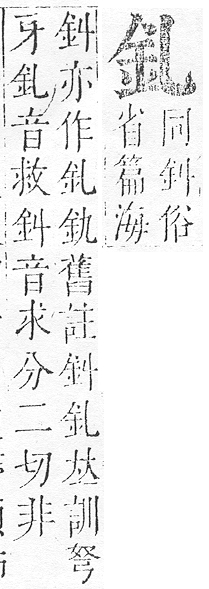 釓
同䤛俗
省篇海
䤛亦作釓釚舊註䤛釓𠀤訓弩
牙釓音救䤛音求分二切非